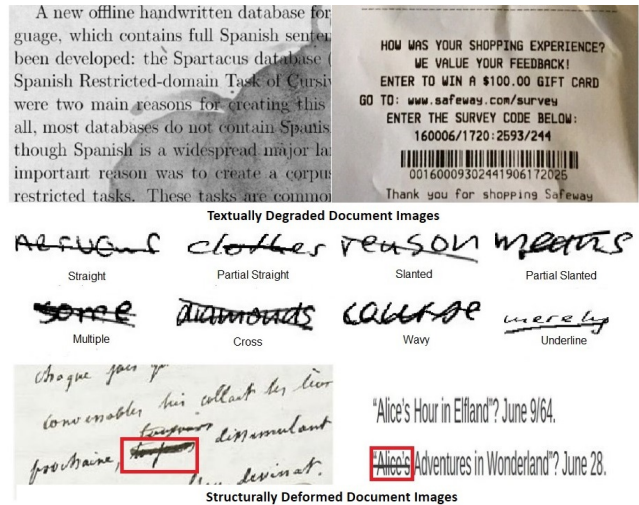 A new offline handwritten database for
guage, which contains full Spanish senten
been developed: the Spartacus database (
Spanish Restricted-domain Task of Cursiv
were two main reasons for creating this
all, most databases do not contain Spanis
though Spanish is a widespread major la
important reason was to create a corpus
restricted tasks. These tasks are common
HOW WAS YOUR SHOPPING EXPERIENCE?
WE VALUE YOUR FEEDBACK!
ENTER TO WIN A $100.00 GIFT CARD
GO TO: www.safeway.com/survey
ENTER THE SURVEY CODE BELOW:
160006/1720:2593/244
00160009302441906172025
Thank you for shopping Safeway
Textually Degraded Document Images
clothes reason means
Straight Partial Straight Slanted Partial Slanted
some diamonds course merely
Multiple Cross Wavy Underline
chaque
convenables les
toujours
prochaine, dissimulant
devinat.
"Alice's Hour in Elfland"? June 9/64.
"Alice's Adventures in Wonderland"? June 28.
Structurally Deformed Document Images